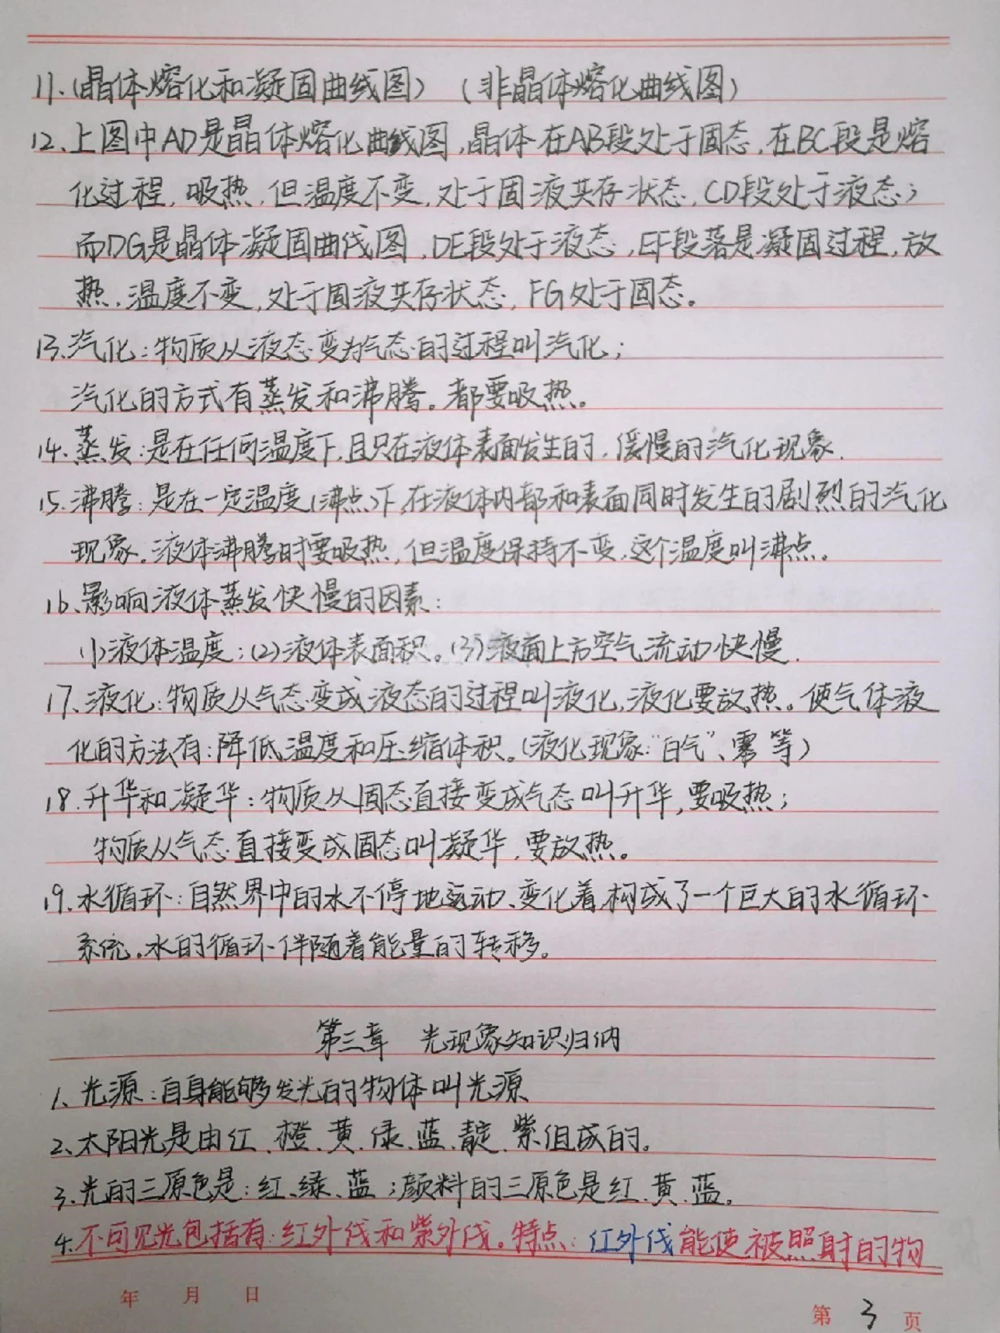 11.(晶体熔化和凝固曲线图) (非晶体熔化曲线图)
12.上图中AD是晶体熔化曲线图,晶体在AB段处于固态,在BC段是熔
化过程,吸热,但温度不变,处于固液共存状态,CD段处于液态;
而DG是晶体凝固曲线图,DE段处于液态,EF段落是凝固过程,放
热,温度不变,处于固液共存状态,FG处于固态。
13.汽化:物质从液态变为气态的过程叫汽化;
汽化的方式有蒸发和沸腾。都要吸热。
14.蒸发:是在任何温度下,且只在液体表面发生的,缓慢的汽化现象.
15.沸腾:是在一定温度(沸点)下,在液体内部和表面同时发生的剧烈的汽化
现象.液体沸腾时要吸热,但温度保持不变,这个温度叫沸点。
16.影响液体蒸发快慢的因素:
(1)液体温度;(2)液体表面积。(3)液面上方空气流动快慢.
17.液化:物质从气态变成液态的过程叫液化,液化要放热。使气体液
化的方法有:降低温度和压缩体积。(液化现象:“白气”、雾等)
18.升华和凝华:物质从固态直接变成气态叫升华,要吸热;
物质从气态直接变成固态叫凝华,要放热。
19.水循环:自然界中的水不停地运动、变化着,构成了一个巨大的水循环
系统。水的循环伴随着能量的转移。
第三章 光现象知识归纳
1、光源:自身能够发光的物体叫光源
2、太阳光是由红、橙、黄、绿、蓝、靛、紫组成的。
3.光的三原色是:红、绿、蓝;颜料的三原色是红、黄、蓝。
4.不可见光包括有:红外线和紫外线。特点:红外线能使被照射的物
年 月 日
第 3 页